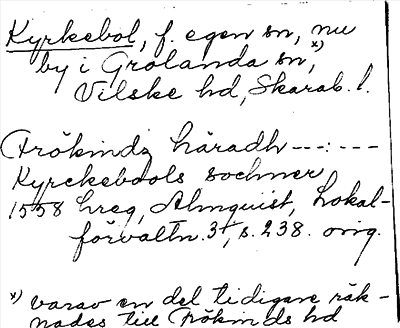 Kyrkebol, f. egen sn, nu
by i Grolanda sn, x)
Vilske hd, Skarab. l.
Frökindz häradh ---:---
Kyrckebools sochner
1558 hreg, Almquist, Lokal-
förvaltn. 3+, s. 238. orig.
x) varav en del tidigare räk-
nades till Frökinds hd